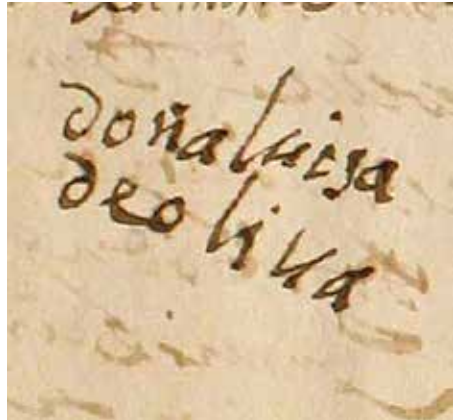 doña luisa
de oliua